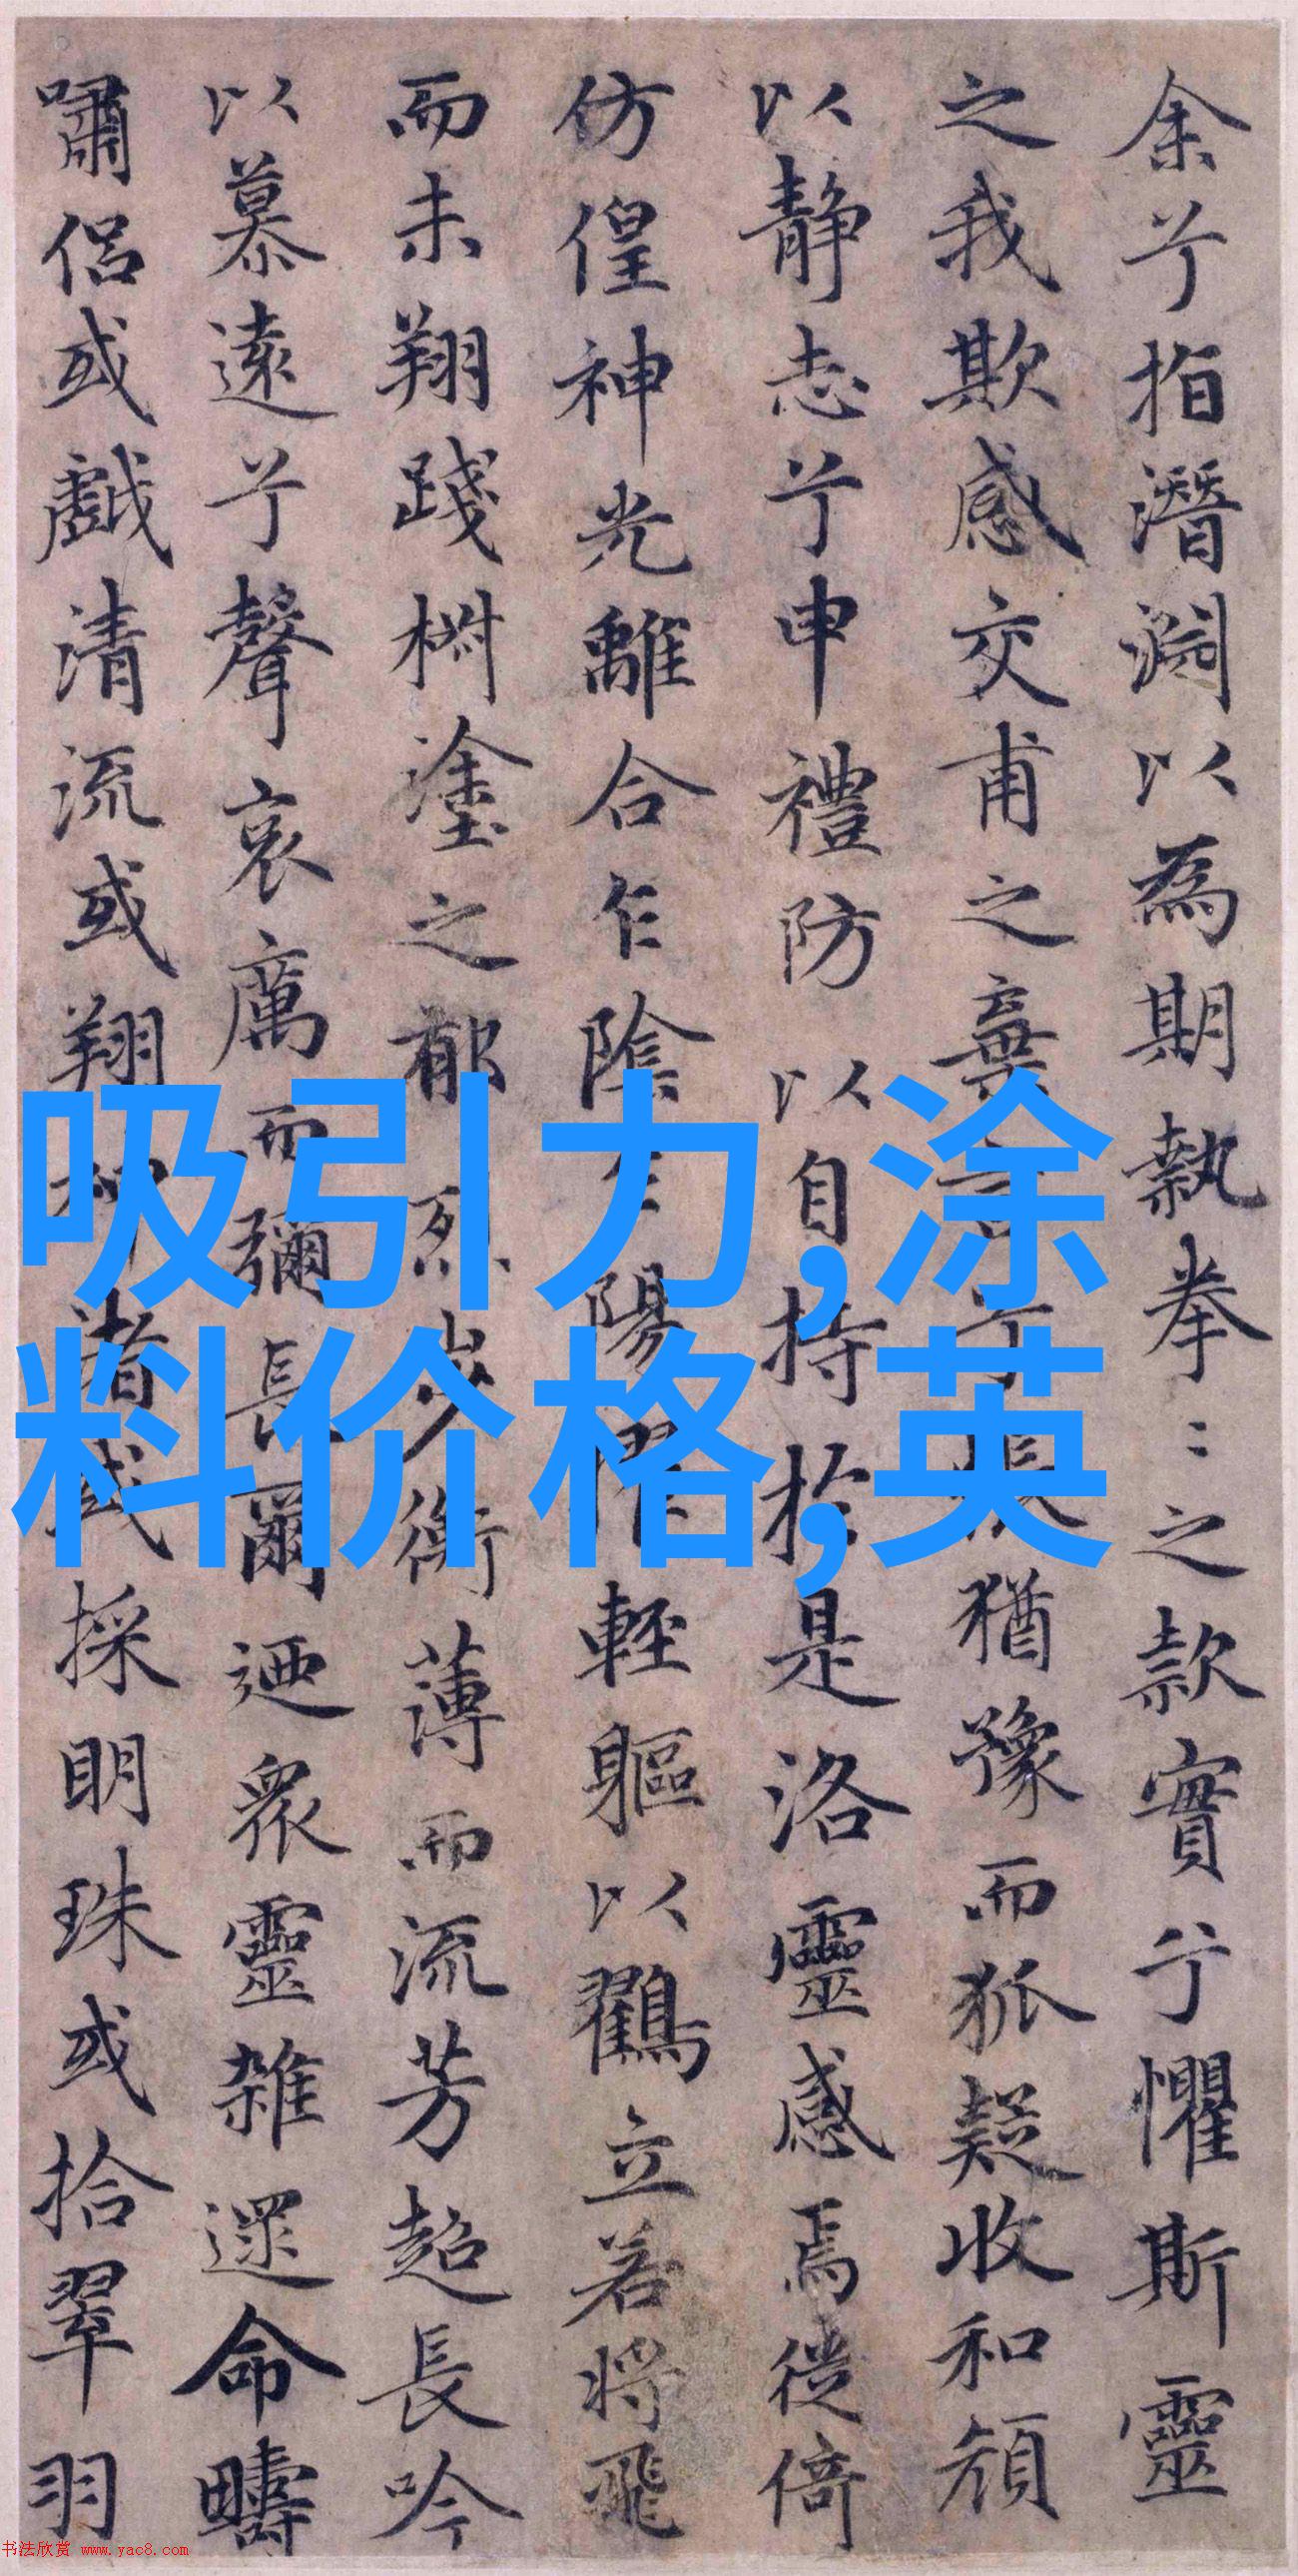 余兮指潛淵以為期執拳〻之款實兮懼斯靈
之我欺感交甫之棄言兮悵猶豫而狐疑收和顏
以靜志兮申禮防以自持於是洛靈感焉徙倚
仿偟神光離合乍陰乍陽擢輕軀以鶴立若將飛
而未翔踐椒塗之郁烈步衡薄而流芳超長吟
以慕遠兮聲哀厲而彌長爾迺眾靈雜遝命疇
嘯侶或戲清流或翔神渚或採明珠或拾翠羽
吸引力,涂
料价格,英
书法欣赏 www.yac8.com